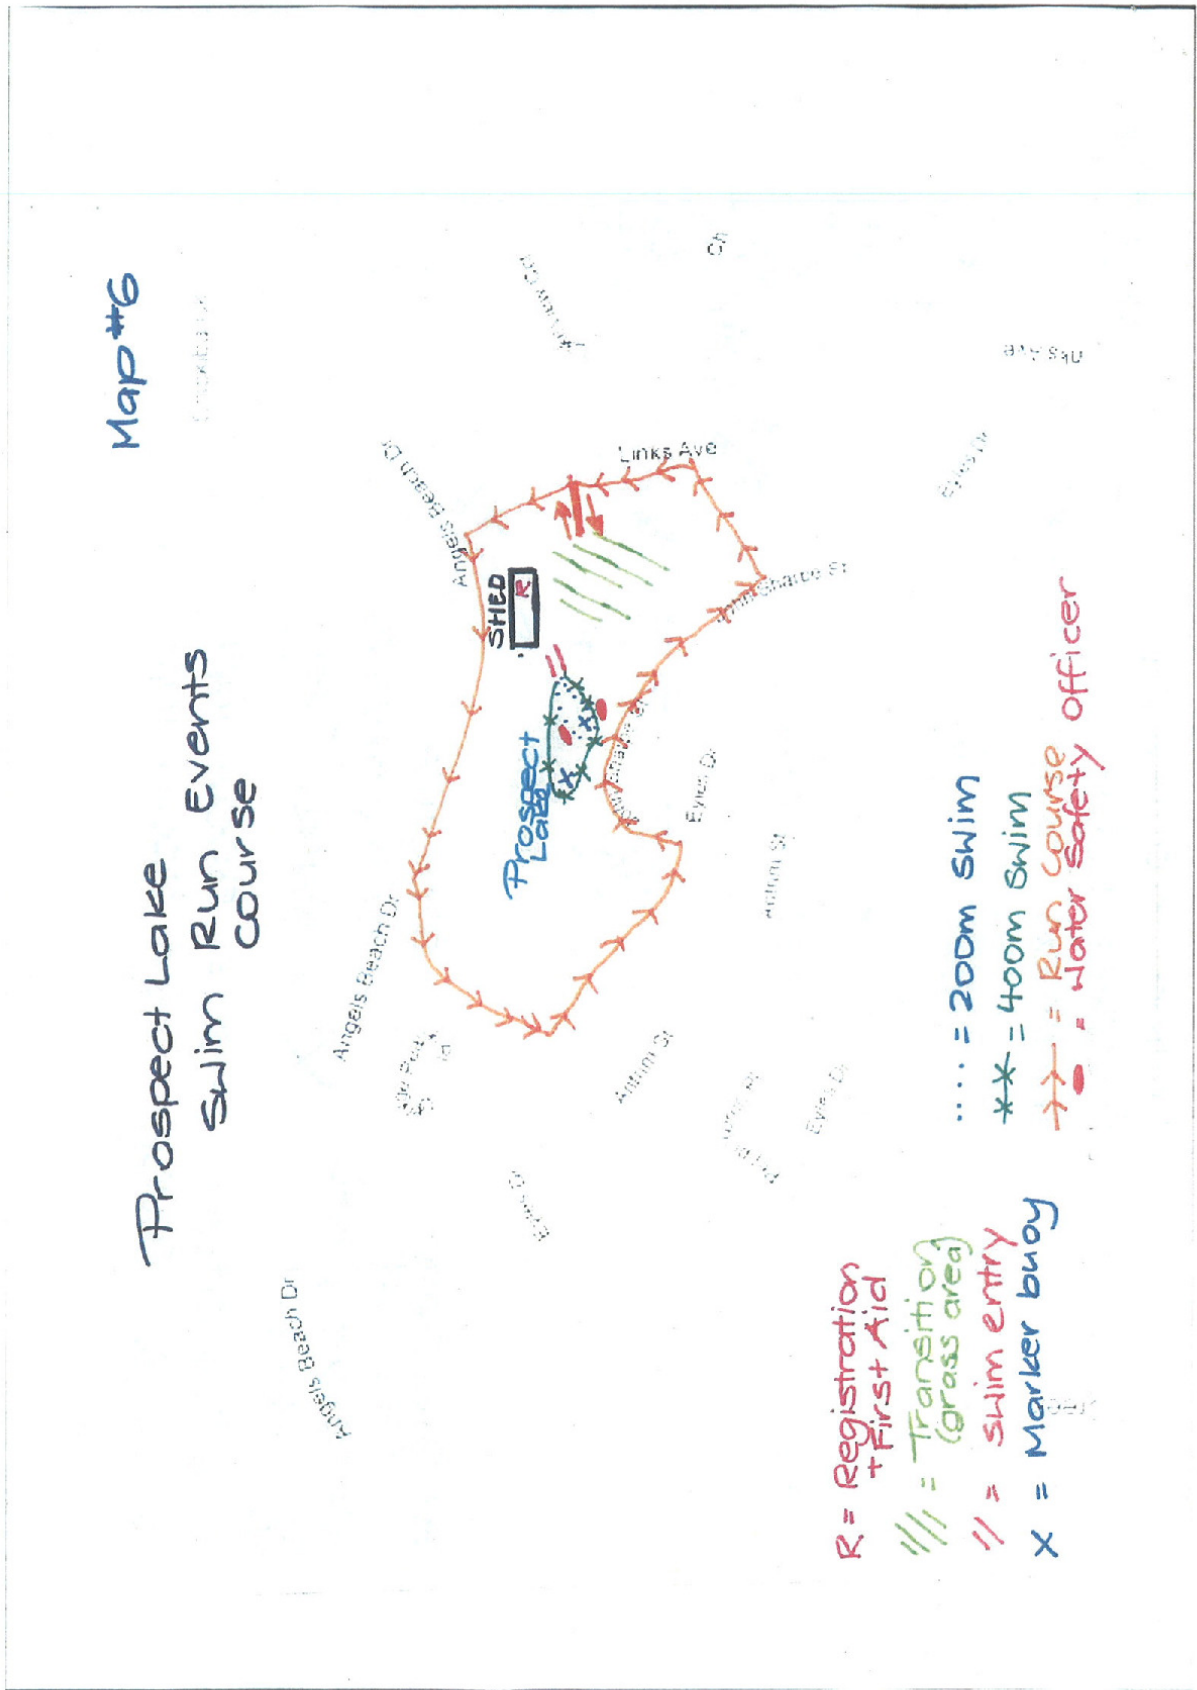 Map #6
Prospect Lake
Swim Run Events
Course
Angels Beach Dr
Angels Beach Dr
Angels Beach Dr
Angels Beach Dr
SHED
R
Links Ave
Prospect
Lake
Sharpe St
Eyles Dr
Eyles Dr
Antrim St
Antrim St
Eyles Dr
Eyles Dr
R = Registration
+ First Aid
//// = Transition
(grass area)
// = swim entry
x = Marker buoy
.... = 200m swim
** = 400m swim
→→ = Run Course
= Water Safety Officer